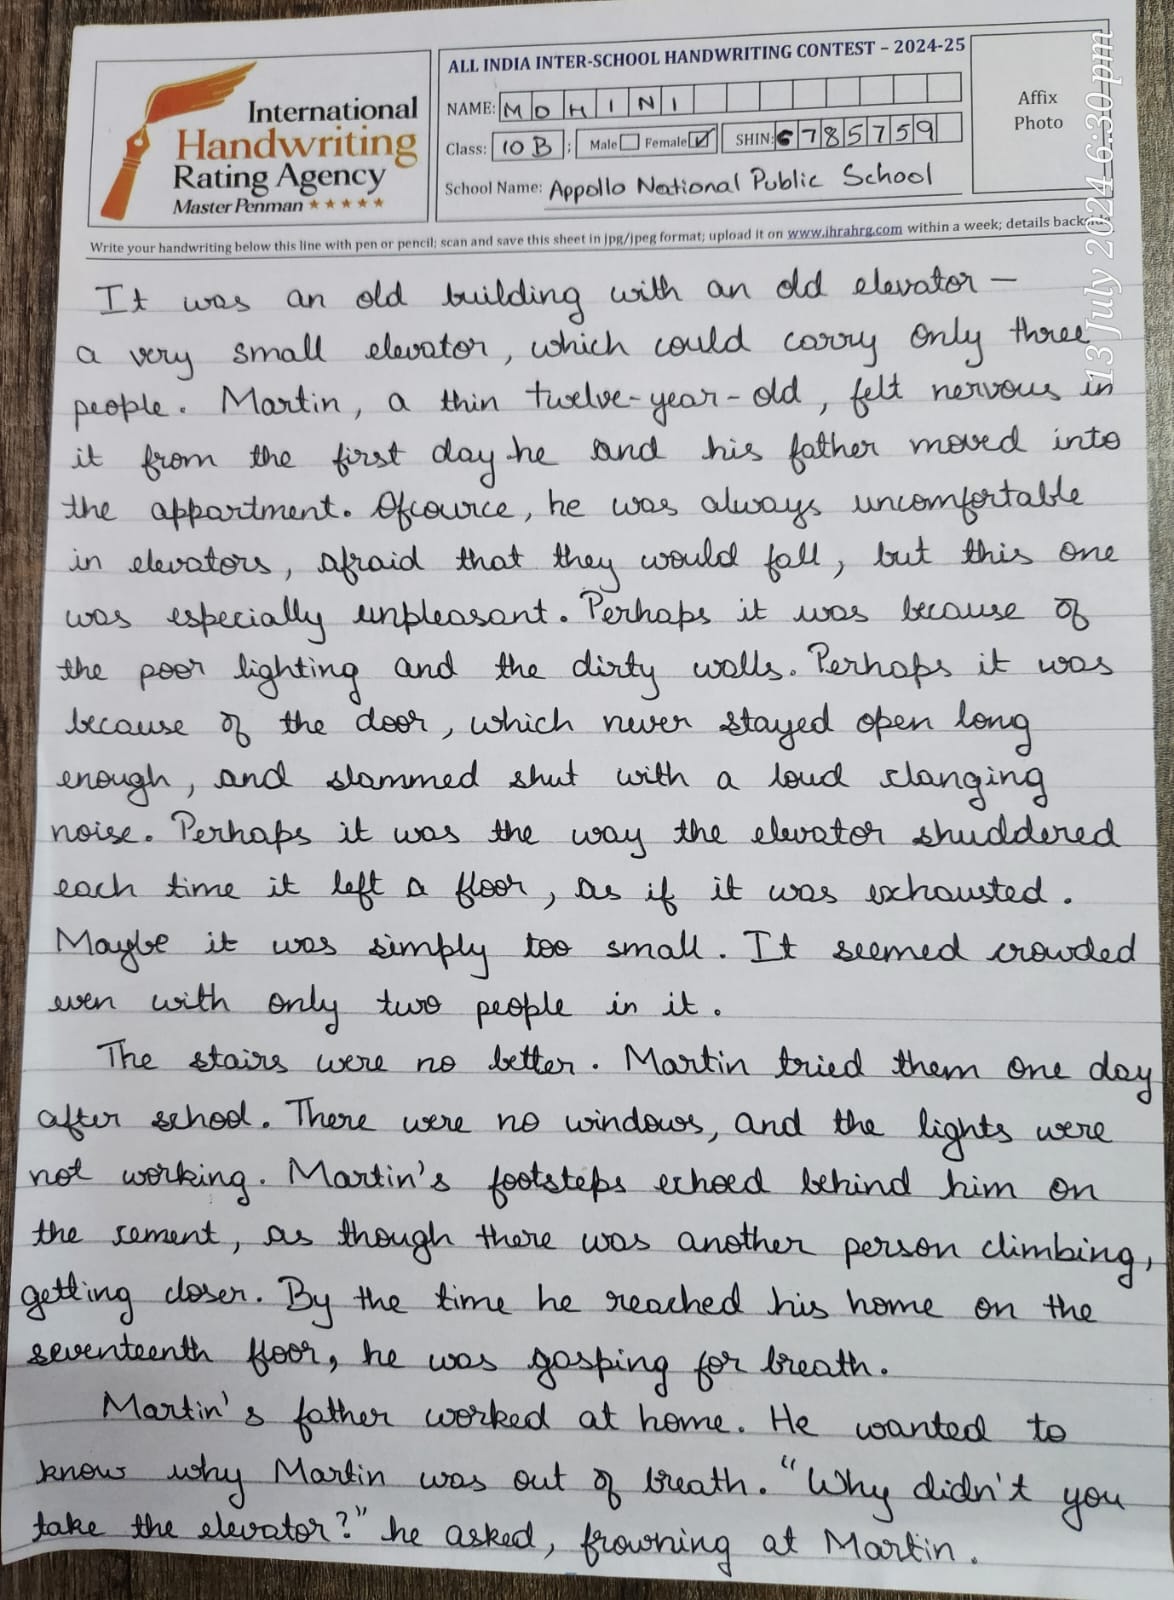 International
Handwriting
Rating Agency
Master Penman ★★★★★
ALL INDIA INTER-SCHOOL HANDWRITING CONTEST – 2024-25
NAME: MOHINI
Class: 10 B ; Male Female ✓ SHIN: 6785759
School Name: Appollo National Public School
Affix
Photo
13 July 2024 6:30 pm
Write your handwriting below this line with pen or pencil; scan and save this sheet in jpg/jpeg format; upload it on www.ihrahrg.com within a week; details
It was an old building with an old elevator –
a very small elevator, which could carry only three
people. Martin, a thin twelve-year-old, felt nervous in
it from the first day he and his father moved into
the appartment. Ofcource, he was always uncomfortable
in elevators, afraid that they would fall, but this one
was especially unpleasant. Perhaps it was because of
the poor lighting and the dirty walls. Perhaps it was
because of the door, which never stayed open long
enough, and slammed shut with a loud clanging
noise. Perhaps it was the way the elevator shuddered
each time it left a floor, as if it was exhausted.
Maybe it was simply too small. It seemed crowded
even with only two people in it.
The stairs were no better. Martin tried them one day
after school. There were no windows, and the lights were
not working. Martin's footsteps echoed behind him on
the cement, as though there was another person climbing,
getting closer. By the time he reached his home on the
seventeenth floor, he was gasping for breath.
Martin's father worked at home. He wanted to
know why Martin was out of breath. "Why didn't you
take the elevator?" he asked, frowning at Martin.